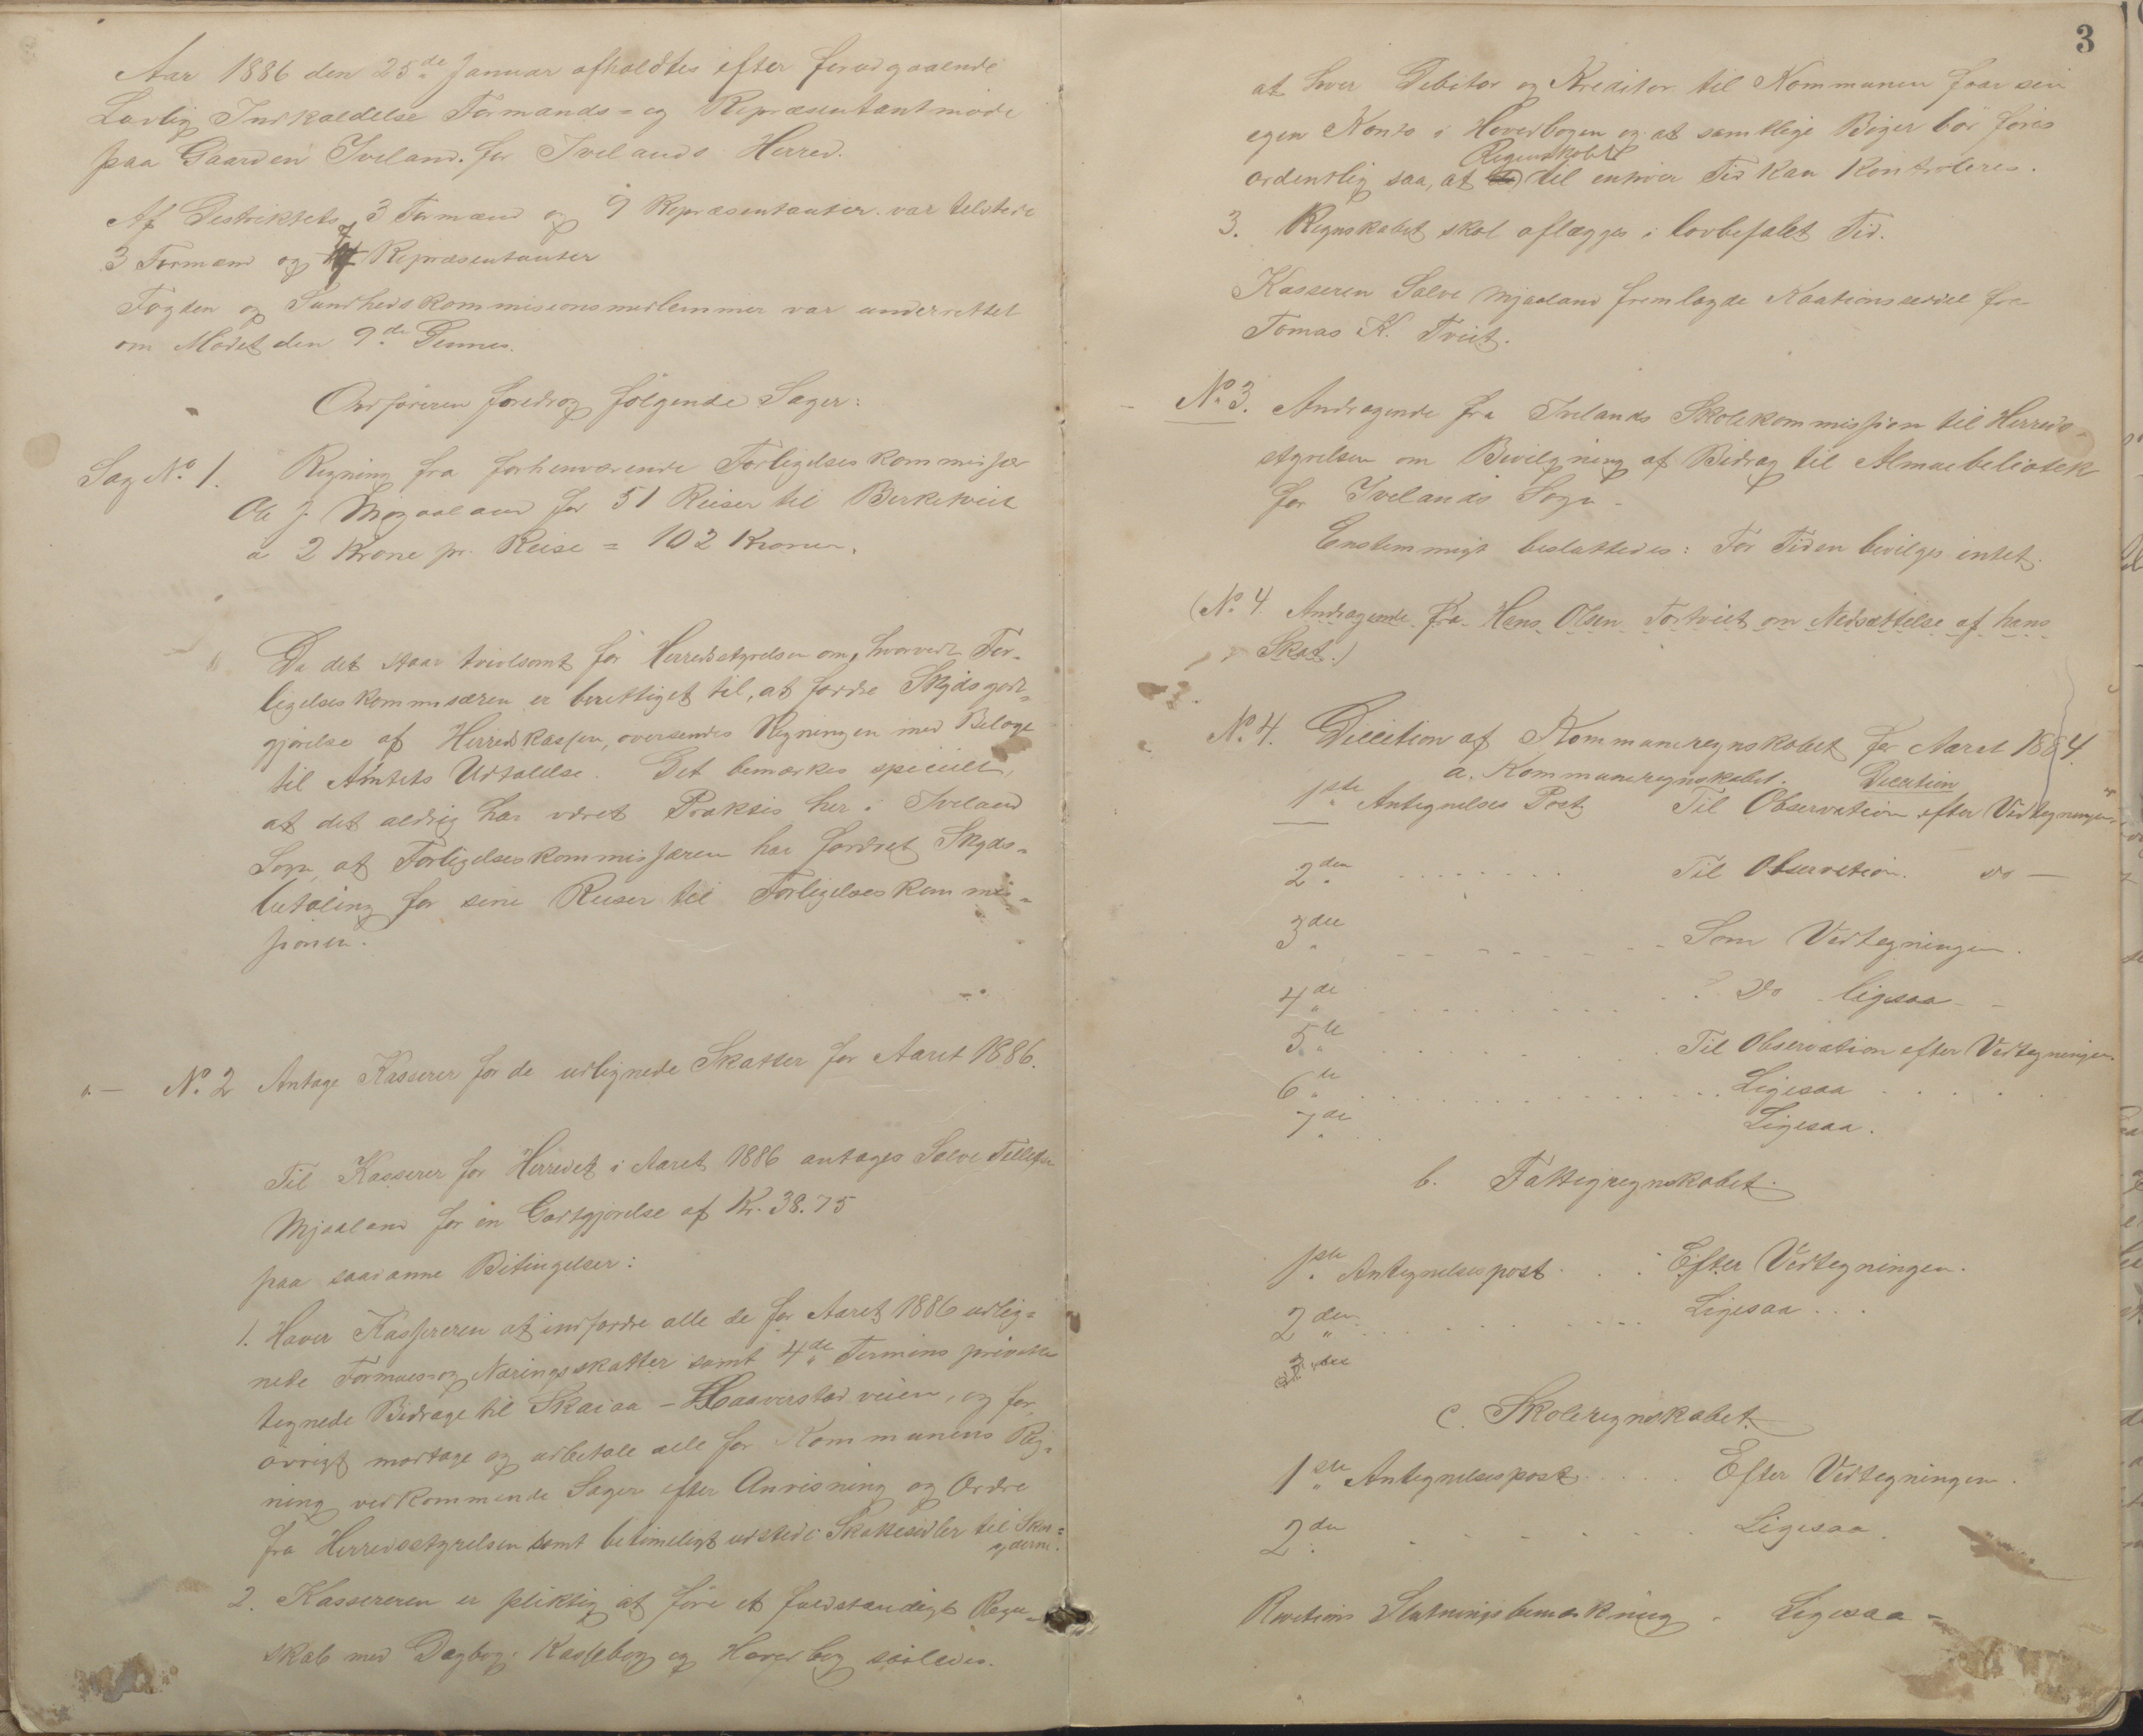 Aar 1886 den 25de Januar afholdtes efter forudgaaende
Lovlig Indkaldelse Formands- og Repræsentantmøde
paa Gaarden Iveland for Ivelands Herred.
Af Destriktets 3 Formænd og 9 Repræsentanter var tilstede
3 Formænd og 7 Repræsentanter
Fogden og Sundhedskommisionsmedlemmer var underrettet
om Mødet den 9de Dennes.
Ordføreren foredrog følgende Sager:
Sag No. 1. Regning fra forhenværende Forligelseskommissær
Ole J. Mjaaland for 51 Reiser til Birketveit
a 2 Krone pr. Reise = 102 Kroner.
Da det staar tvivlsomt for Herredsstyrelsen om, hvorvidt For-
ligelseskommisæren er berettiget til, at fordre Skydsgodt-
gjørelse af Herredskassen, oversendes Regningen med Belage
til Amtets Udtalelse. Det bemærkes specielt,
at det aldrig har været Praktis her i Iveland
Sogn, at Forligelseskommissæren har fordret Skyds-
betaling for sine Reiser til Forligelseskommis-
sionen.
No. 2 Antage Kasserer for de udlignede Skatter for Aaret 1886.
Til Kasserer for Herredet i Aaret 1886 antages Salve Tellefsen
Mjaaland for en Godtgjørelse af Kr. 38.75
paa saadanne Betingelser:
1. Haver Kassereren at indfordre alle de for Aaret 1886 udlig-
nede Formues- og Næringsskatter samt 4de Termins private
tegnede Bidrage til Skaiaa - Haaverstad veien, og for
øvrigt modtage og udbetale alle for Kommunens Reg-
ning vedkommende Sager efter Anvisning og Ordre
fra Herredsstyrelsen samt betimeligt udstede Skattesedler til Skat-
yderne.
2. Kassereren er pliktig at føre et fuldstændigt Regn-
skab med Dagbog, Kassebog og Hovedbog saaledes.
3
at hver Debitor og Kreditor til Kommunen faar sin
egen Konto i Hovedbogen og at samtlige Bøger bør føres
Regnskabet
ordentlig saa, at til enhver Tid kan kontroleres.
3. Regnskabet skal aflægges i lovbefalet Tid.
Kasseren Salve Mjaaland fremlagde Kautionsseddel fra
Tomas K. Tveit.
No. 3. Andragende fra Ivelands Skolekommission til Herreds-
styrelsen om Bevilgning af Bidrag til Almuebeliotek
for Ivelands Sogn.
Enstemmigt besluttedes: For Tiden bevilges intet.
(No. 4 Andragende fra Hans Olsen Tortveit om Nedsættelse af hans
Skat.)
No. 4. Decition af Kommuneregnskabet for Aaret 1884.
a. Kommuneregnskabet. Decition
1ste Antegnelses Post Til Observation efter Vedtegningen
2den Til Observation. do
3die Som Vedtegningen.
4de Do ligesaa
5te Til Observation efter Vedtegningen
6te Ligesaa
7de Ligesaa.
b. Fattigregnskabet.
1ste Antegnelsespost Efter Vedtegningen.
2den Ligesaa
3die
c. Skoleregnskabet.
1ste Antegnelsespost Efter Vedtegningen.
2den Ligesaa.
Revitions Slutningsbemærkning Ligesaa